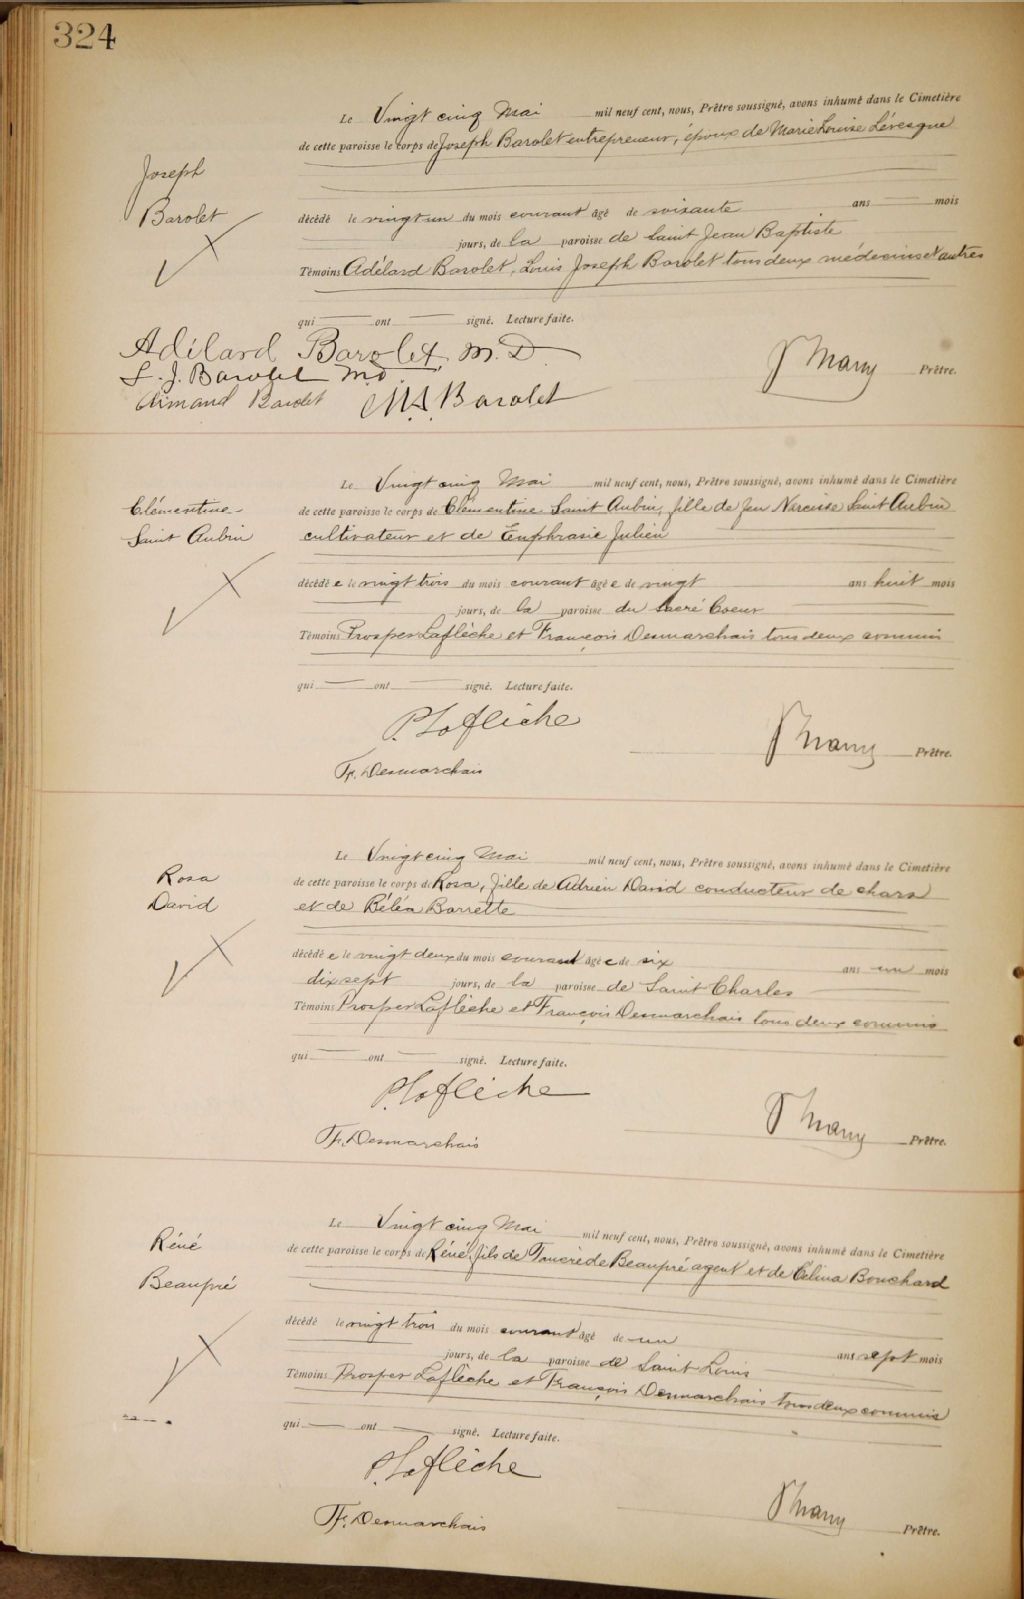 324
Le Vingt cinq Mai mil neuf cent, nous, Prêtre soussigné, avons inhumé dans le Cimetière
de cette paroisse le corps de Joseph Barolet entrepreneur, époux de Marie Louise Lévesque
Joseph
Barolet
décédé le vingt un du mois courant âgé de soixante ans mois
jours, de la paroisse de Saint Jean Baptiste
Témoins Adélard Barolet, Louis Joseph Barolet tous deux médecins et autres
qui ont signé. Lecture faite.
Adélard Barolet, M.D.
L. J. Barolet MD
Armand Barolet M.A. Barolet
Prêtre.
Le Vingt cinq Mai mil neuf cent, nous, Prêtre soussigné, avons inhumé dans le Cimetière
Clémentine
Saint Aubin
de cette paroisse le corps de Clémentine Saint Aubin, fille de feu Narcisse Saint Aubin
cultivateur et de Euphrasie Julien
décédée le vingt trois du mois courant âgée de vingt ans huit mois
jours, de la paroisse du Sacré Coeur
Témoins Prosper Laflèche et François Desmarchais tous deux commis
qui ont signé. Lecture faite.
P. Laflèche
Prêtre.
Fr. Desmarchais
Le Vingt cinq Mai mil neuf cent, nous, Prêtre soussigné, avons inhumé dans le Cimetière
Rosa
David
de cette paroisse le corps de Rosa, fille de Adrien David conducteur de chars
et de Béléa Barrette
décédée le vingt deux du mois courant âgée de six ans un mois
dix sept jours, de la paroisse de Saint Charles
Témoins Prosper Laflèche et François Desmarchais tous deux commis
qui ont signé. Lecture faite.
P. Laflèche
Fr. Desmarchais
Prêtre.
Le Vingt cinq Mai mil neuf cent, nous, Prêtre soussigné, avons inhumé dans le Cimetière
Réné
Beaupré
de cette paroisse le corps de Réné, fils de Tancrède Beaupré agent et de Célina Bouchard
décédé le vingt trois du mois courant âgé de un ans sept mois
jours, de la paroisse de Saint Louis
Témoins Prosper Laflèche et François Desmarchais tous deux commis
qui ont signé. Lecture faite.
P. Laflèche
Fr. Desmarchais
Prêtre.